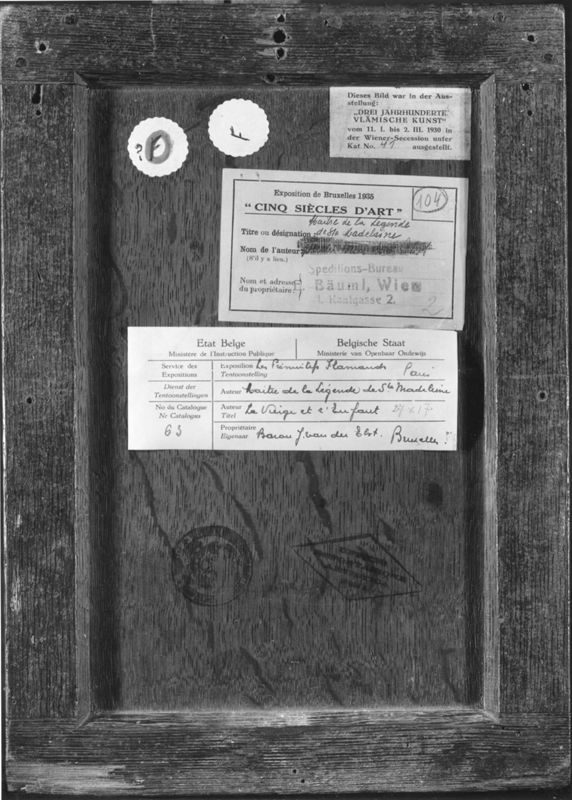 ? O
F
Dieses Bild war in der Aus-
stellung:
„DREI JAHRHUNDERTE
VLÄMISCHE KUNST"
vom 11. I. bis 2. III. 1930 in
der Wiener-Secession unter
Kat No. 41 ausgestellt.
Exposition de Bruxelles 1935
104
“ CINQ SIÈCLES D'ART ”
Maitre de la Légende
Titre ou désignation: de Ste Madelaine
Nom de l'auteur:
(S'il y a lieu.)
Speditions-Bureau
Nom et adresse
du propriétaire: Bäuml, Wien
I. Kantgasse 2.
2
Etat Belge
Ministère de l'Instruction Publique
Belgische Staat
Ministerie van Openbaar Onderwijs
Service des
Expositions
Exposition Les Primitifs Flamands Paris
Tentoonstelling
Dienst der
Tentoonstellingen
Auteur Maitre de la Légende de Ste Madeleine
No du Catalogue
Nr Catalogus
63
Auteur
Titel La Vierge et l'Enfant 27 x 17
Propriétaire
Eigenaar Baron J. van der Elst. Bruxelles